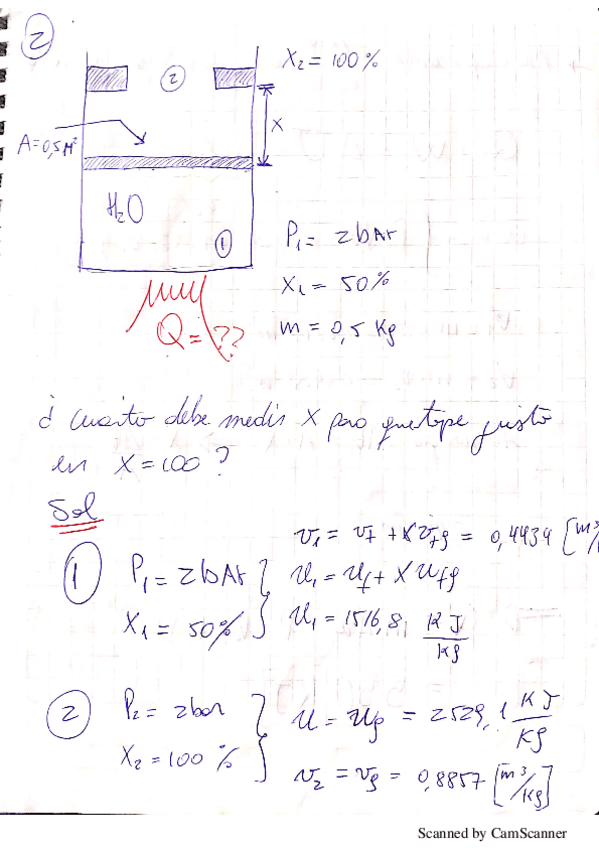 2
X₂ = 100%
2
X
A=0,5M²
H₂O
1
P₁ = 2bAr
X₁ = 50%
m = 0,5 Kg
Q = ??
¿ Cuanto debe medir X para que tope justo
en X = 100 ?
Sol
1
P₁ = 2bAr
X₁ = 50%
v₁ = vf + X vfg = 0,4434 [m³/
u₁ = uf + X ufg
u₁ = 1516,8 KJ/Kg
2
P₂ = 2bar
X₂ = 100 %
u = ug = 2529,1 KJ/Kg
v₂ = vg = 0,8857 [m³/Kg]
Scanned by CamScanner